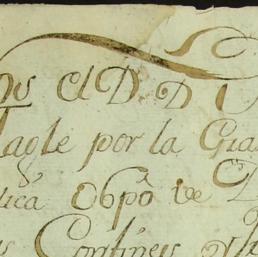 os El D. D
Tagle por la Gra
lica Obpō de
Confines y